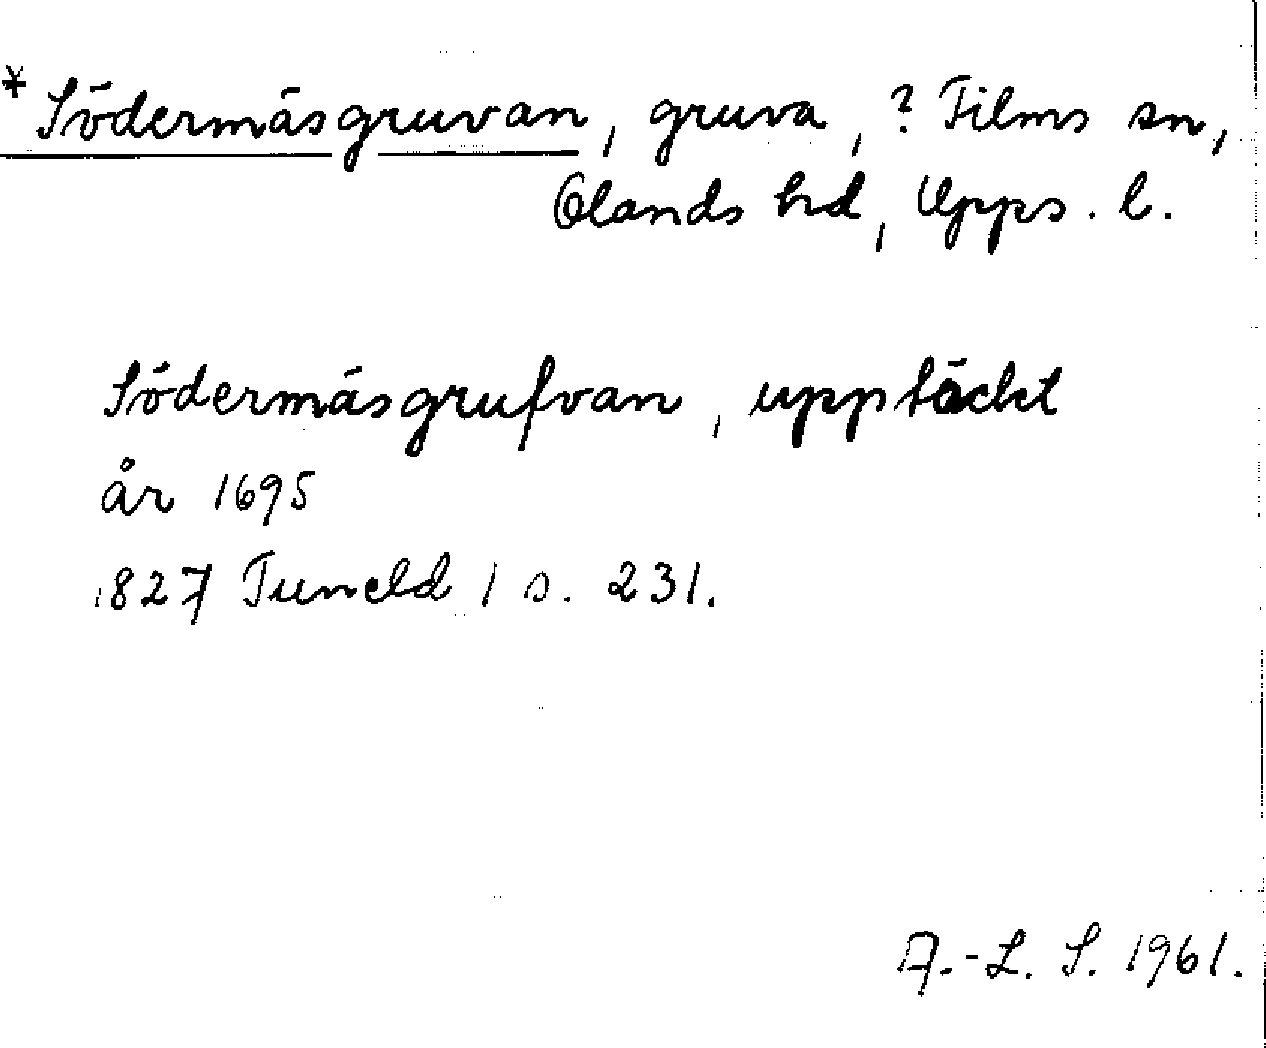 * Södermäsgruvan, gruva, ? Films sn,
Olands hd, Upps. l.
Södermäsgrufvan, upptäckt
år 1695
1827 Tuneld 1 s. 231.
A.-L. S. 1961.